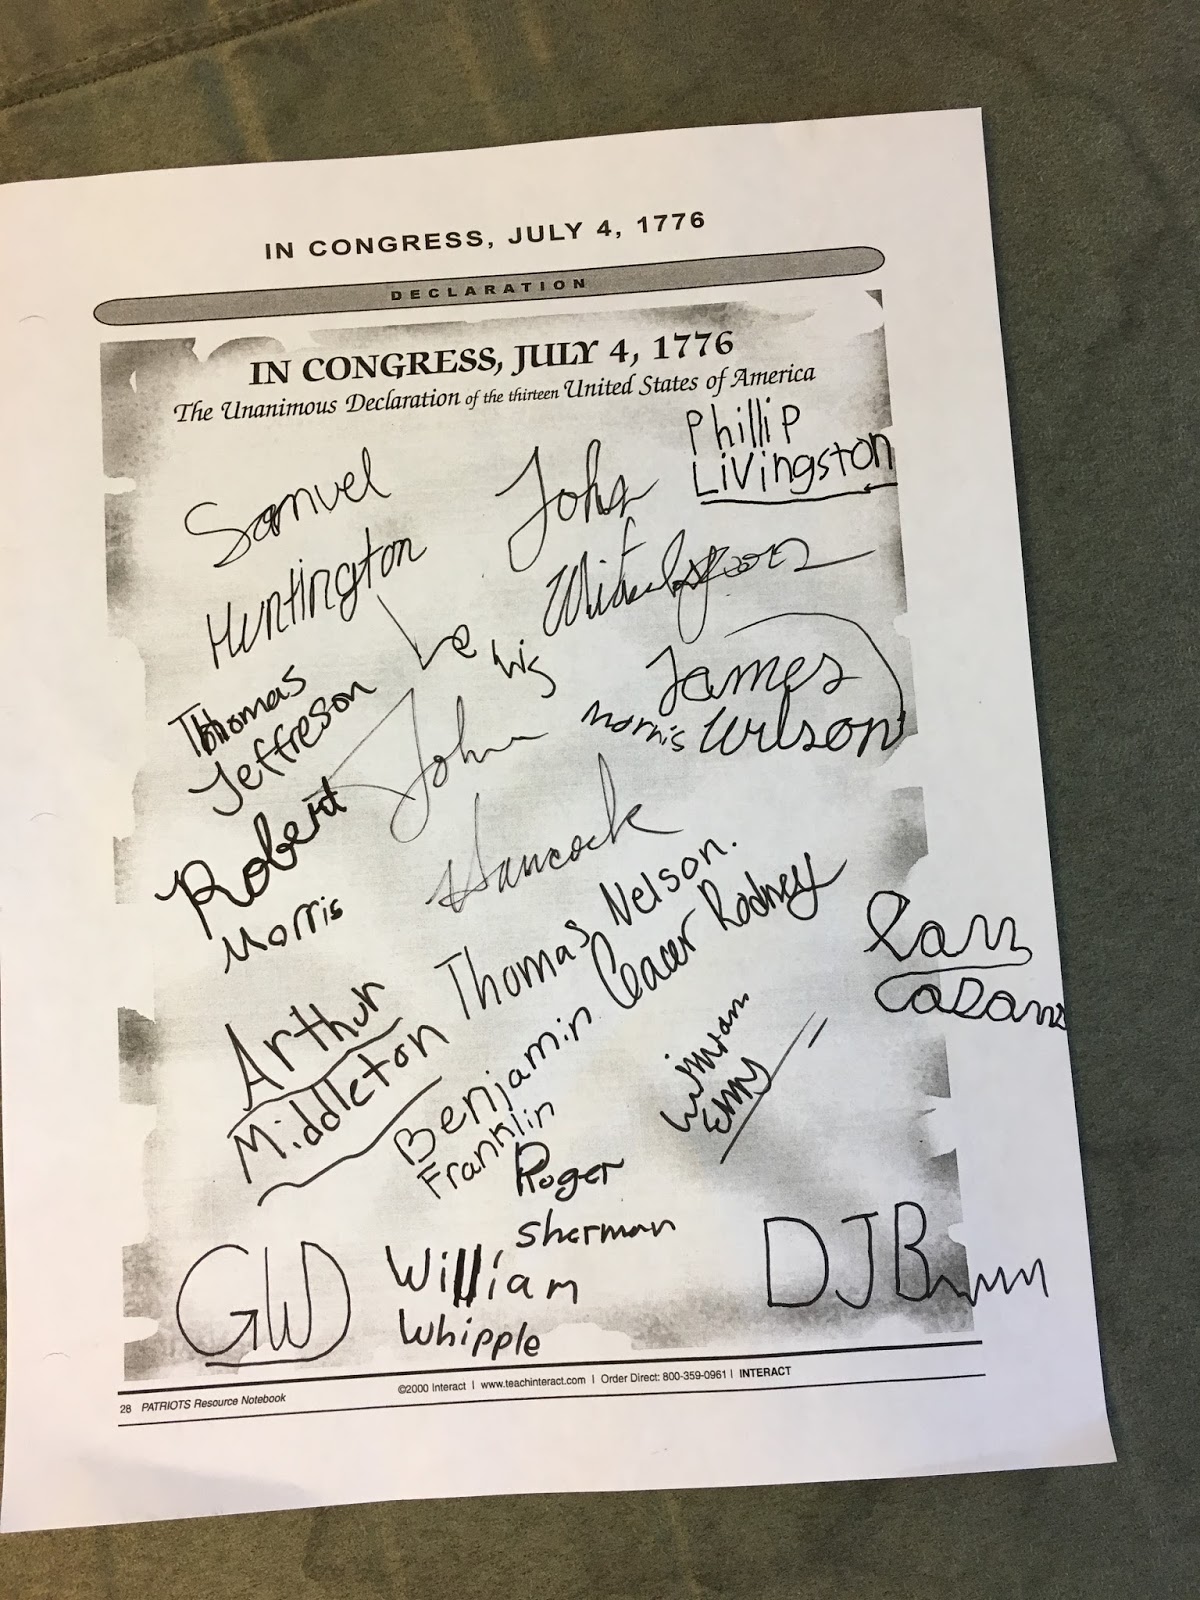 IN CONGRESS, JULY 4, 1776
DECLARATION
IN CONGRESS, JULY 4, 1776
The Unanimous Declaration of the thirteen United States of America
Phillip
Livingston
Samuel
Huntington
John
Lewis
Morris
James
Wilson
Thomas
Jeffreson
John
Hancock
Robert
Morris
Thomas Nelson.
Ceacer Rodney
Arthur
Middleton
Benjamin
Franklin
Roger
Sherman
GW
William
Whipple
DJB
28 PATRIOTS Resource Notebook
©2000 Interact | www.teachinteract.com | Order Direct: 800-359-0961 | INTERACT